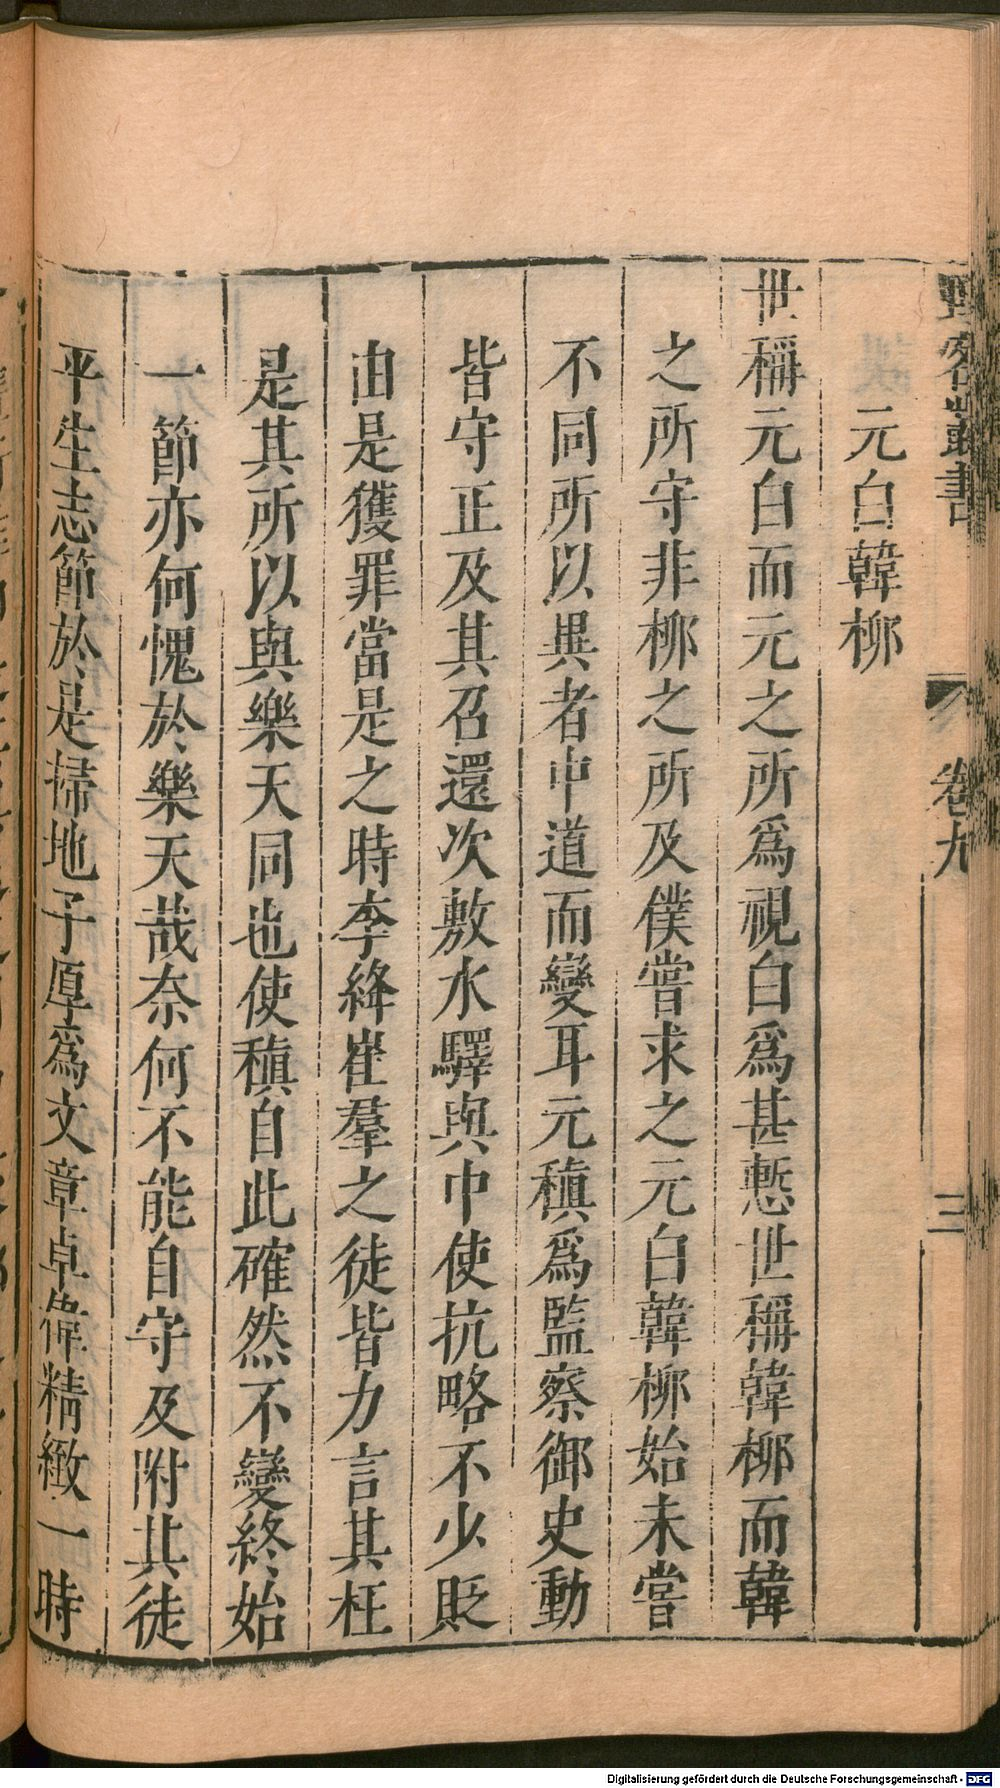 野客叢書
卷九
三
元白韓柳
世稱元白而元之所爲視白爲甚慙世稱韓柳而韓
之所守非柳之所及僕嘗求之元白韓柳始未嘗
不同所以異者中道而變耳元稹爲監察御史動
皆守正及其召還次敷水驛與中使抗略不少貶
由是獲罪當是之時李絳崔羣之徒皆力言其枉
是其所以與樂天同也使稹自此確然不變終始
一節亦何愧於樂天哉奈何不能自守及附其徒
平生志節於是掃地子厚爲文章卓偉精緻一時
Digitalisierung gefördert durch die Deutsche Forschungsgemeinschaft - DFG